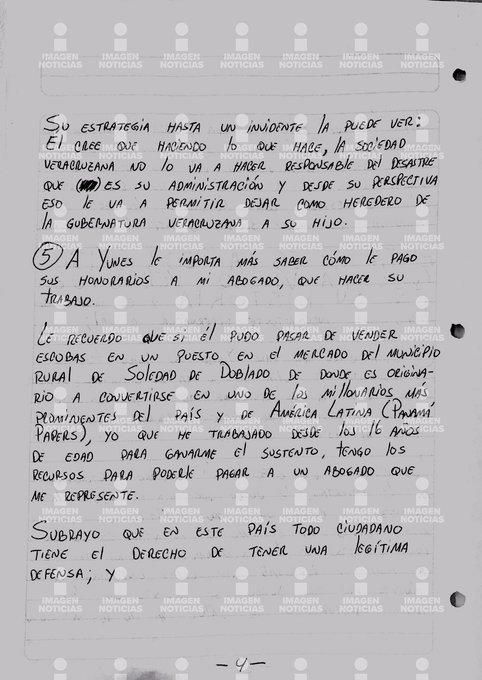 SU ESTRATEGIA HASTA UN INVIDENTE LA PUEDE VER:
ÉL CREE QUE HACIENDO LO QUE HACE, LA SOCIEDAD
VERACRUZANA NO LO VA A HACER RESPONSABLE DEL DESASTRE
QUE ES SU ADMINISTRACIÓN Y DESDE SU PERSPECTIVA
ESO LE VA A PERMITIR DEJAR COMO HEREDERO DE
LA GUBERNATURA VERACRUZANA A SU HIJO.
5 A YUNES LE IMPORTA MÁS SABER CÓMO LE PAGO
SUS HONORARIOS A MI ABOGADO, QUE HACER SU
TRABAJO.
LE RECUERDO QUE SI ÉL PUDO PASAR DE VENDER
ESCOBAS EN UN PUESTO EN EL MERCADO DEL MUNICIPIO
RURAL DE SOLEDAD DE DOBLADO DE DONDE ES ORIGINA-
RIO A CONVERTIRSE EN UNO DE LOS MILLONARIOS MÁS
PROMINENTES DEL PAÍS Y DE AMÉRICA LATINA (PANAMÁ
PAPERS), YO QUE HE TRABAJADO DESDE LOS 16 AÑOS
DE EDAD PARA GANARME EL SUSTENTO, TENGO LOS
RECURSOS PARA PODERLE PAGAR A UN ABOGADO QUE
ME REPRESENTE.
SUBRAYO QUE EN ESTE PAÍS TODO CIUDADANO
TIENE EL DERECHO DE TENER UNA LEGÍTIMA
DEFENSA; Y
- 4 -
IMAGEN
NOTICIAS